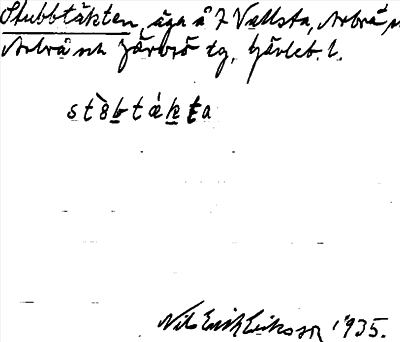 Stubbtäkten, äga å 7 Vallsta, Arbrå sn
Arbrå och Järvsö tg, Gävleb. l.
stùbtákta
Nils Erik Eriksson 1935.